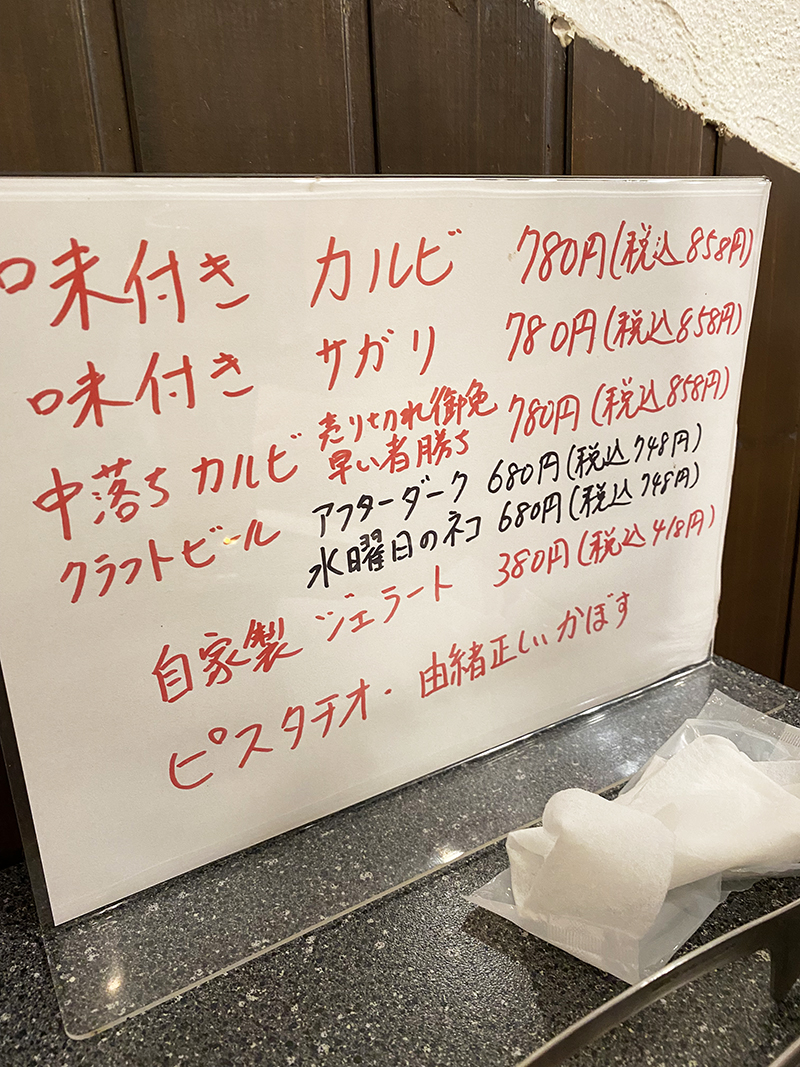 味付き カルビ 780円(税込858円)
味付き サガリ 780円(税込858円)
中落ち カルビ 売り切れ御免 780円(税込858円)
早い者勝ち
クラフトビール アフターダーク 680円(税込748円)
水曜日のネコ 680円(税込748円)
自家製 ジェラート 380円(税込418円)
ピスタチオ・由緒正しいかぼす